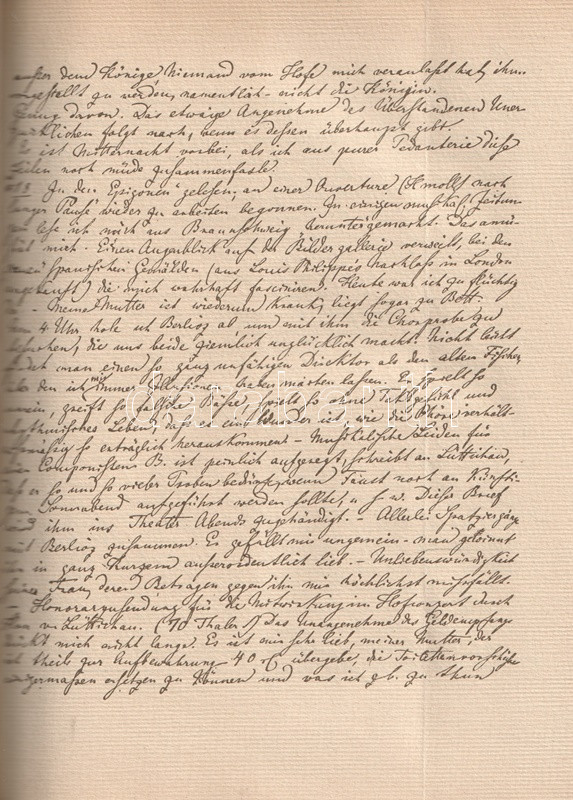 dem Könige, Niemand vom Hofe mich veranlaßt hat, ihm
gestellt zu werden, namentlich nicht die Königin.
davon. Das etwaige Angenehme des Überstandenen Uner-
quicklichen folgt nach, wenn es dessen überhaupt gibt.
ist Mitternacht vorbei, als ich aus purer Pedanterie diese
noch müde zusammenfaßte.
In den "Epigonen" gelesen, an einer Ouverture (Hmoll) nach
langer Pause wieder zu arbeiten begonnen. In einigen musikal. Zeitun-
gen lese ich mich aus Braunschweig heruntergemacht. Das amü-
mich. Einen Augenblick auf der Bildergallerie verweilt, bei den
Spanischen Gemälden (aus Louis Philippe's Nachlaß in London
angekauft) die mich wahrhaft fasciniren. Heute war ich zu flüchtig
- Meine Mutter ist wiederum krank, liegt sogar zu Bett.
4 Uhr hole ich Berlioz ab, um mit ihm die Chorprobe zu
die uns beide ziemlich unglücklich macht. Nicht leicht
man einen so ganz unfähigen Direktor als den alten Fischer
den ich mir immer Illusionen habe machen lassen. Er
greift so falsche Bässe, spielt so ohne Taktgefühl und
rhythmisches Leben, daß es ein Wunder ist, wie die Chöre verhält-
nißmäßig so erträglich herauskommen. - Musikalische Leiden für
Componisten. B. ist peinlich aufgeregt, schreibt an Lüttichau,
daß er so und so vieler Proben bedürfe, wenn Faust noch am künfti-
Sonnabend aufgeführt werden sollte, u. s. w. Dieser Brief
ihm ins Theater Abends eingehändigt. - Allerlei Spaziergänge
mit Berlioz zusammen. Er gefällt mir ungemein - man gewinnt
in ganz Kurzem außerordentlich lieb. - Unliebenswürdigkeit
Frau, deren Betragen gegen ihn mir höchlichst mißfällt.
Honorarzusendung für die Mitwirkung im Hofconzert durch
v. Lüttichau. (70 Thaler) Das Unangenehme des Geldempfangs
drückt mich nicht lange. Es ist mir sehr lieb, meiner Mutter, der
theils zur Aufbewahrung 40 übergebe, die Toilettenvorschüsse
einigermaßen ersetzen zu können und was ich gb. zu thun
darabanth